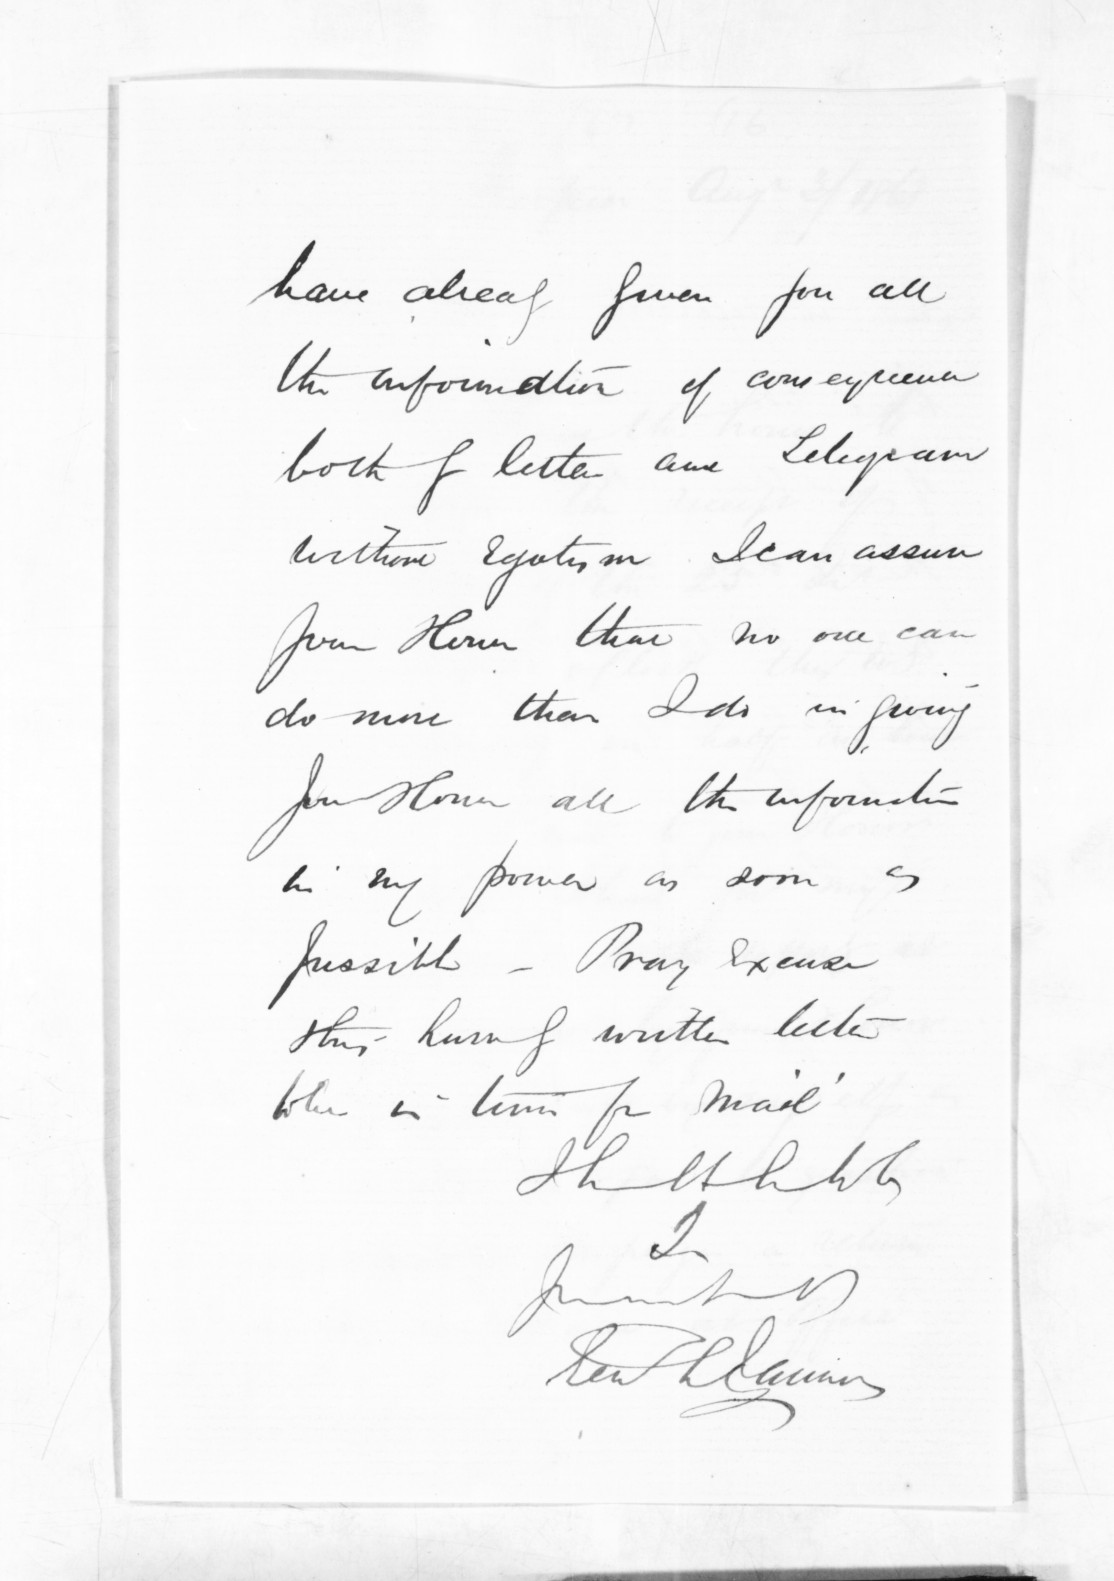 have already given you all
the information of consequence
both by letter and Telegram
without Egotism I can assure
your Honor that no one can
do more than I do in giving
your Honor all the information
in my power as soon as
possible - Pray Excuse
this hurriedly written letter
to be in time for Mail
I